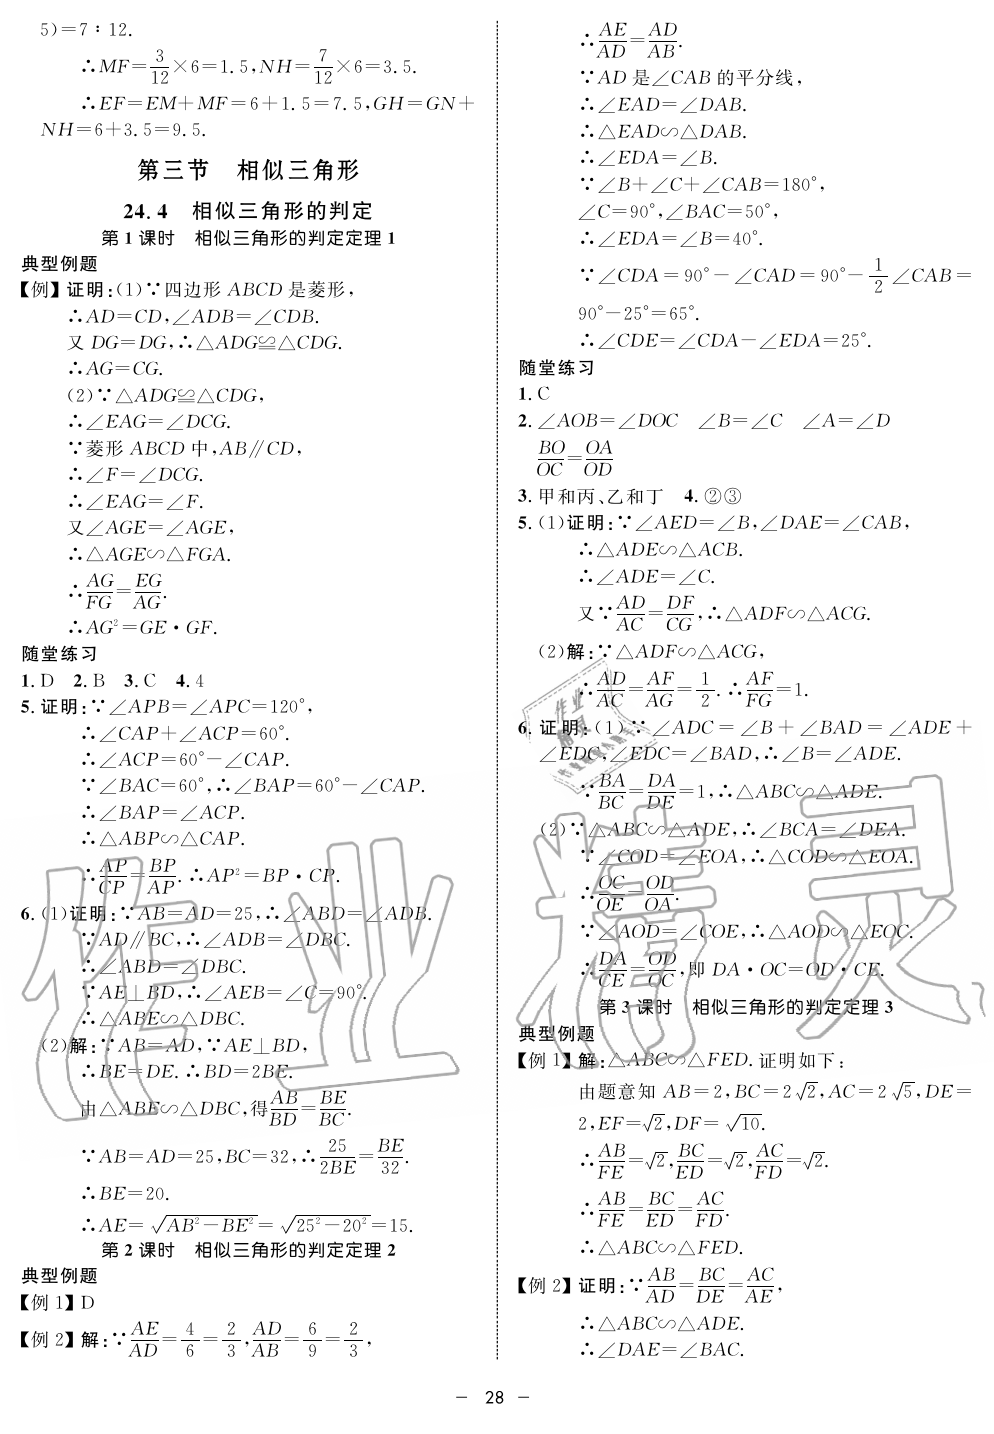 5)=7∶12.
∴MF=3/12×6=1.5,NH=7/12×6=3.5.
∴EF=EM+MF=6+1.5=7.5,GH=GN+
NH=6+3.5=9.5.
第三节 相似三角形
24.4 相似三角形的判定
第1课时 相似三角形的判定定理1
典型例题
【例】证明:(1)∵四边形ABCD是菱形,
∴AD=CD,∠ADB=∠CDB.
又DG=DG,∴△ADG≌△CDG.
∴AG=CG.
(2)∵△ADG≌△CDG,
∴∠EAG=∠DCG.
∵菱形ABCD中,AB∥CD,
∴∠F=∠DCG.
∴∠EAG=∠F.
又∠AGE=∠AGE,
∴△AGE∽△FGA.
∴AG/FG=EG/AG.
∴AG²=GE·GF.
随堂练习
1.D 2.B 3.C 4.4
5.证明:∵∠APB=∠APC=120°,
∴∠CAP+∠ACP=60°.
∴∠ACP=60°-∠CAP.
∵∠BAC=60°,∴∠BAP=60°-∠CAP.
∴∠BAP=∠ACP.
∴△ABP∽△CAP.
∴AP/CP=BP/AP.∴AP²=BP·CP.
6.(1)证明:∵AB=AD=25,∴∠ABD=∠ADB.
∵AD∥BC,∴∠ADB=∠DBC.
∴∠ABD=∠DBC.
∵AE⊥BD,∴∠AEB=∠C=90°.
∴△ABE∽△DBC.
(2)解:∵AB=AD,∵AE⊥BD,
∴BE=DE.∴BD=2BE.
由△ABE∽△DBC,得AB/BD=BE/BC.
∵AB=AD=25,BC=32,∴25/2BE=BE/32.
∴BE=20.
∴AE=√(AB²-BE²)=√(25²-20²)=15.
第2课时 相似三角形的判定定理2
典型例题
【例1】D
【例2】解:∵AE/AD=4/6=2/3,AD/AB=6/9=2/3,
∴AE/AD=AD/AB.
∵AD是∠CAB的平分线,
∴∠EAD=∠DAB.
∴△EAD∽△DAB.
∴∠EDA=∠B.
∵∠B+∠C+∠CAB=180°,
∠C=90°,∠BAC=50°,
∴∠EDA=∠B=40°.
∵∠CDA=90°-∠CAD=90°-1/2∠CAB=
90°-25°=65°.
∴∠CDE=∠CDA-∠EDA=25°.
随堂练习
1.C
2.∠AOB=∠DOC ∠B=∠C ∠A=∠D
BO/OC=OA/OD
3.甲和丙、乙和丁 4.②③
5.(1)证明:∵∠AED=∠B,∠DAE=∠CAB,
∴△ADE∽△ACB.
∴∠ADE=∠C.
又∵AD/AC=DF/CG,∴△ADF∽△ACG.
(2)解:∵△ADF∽△ACG,
∴AD/AC=AF/AG=1/2.∴AF/FG=1.
6.证明:(1)∵∠ADC=∠B+∠BAD=∠ADE+
∠EDC,∠EDC=∠BAD,∴∠B=∠ADE.
∵BA/BC=DA/DE=1,∴△ABC∽△ADE.
(2)∵△ABC∽△ADE,∴∠BCA=∠DEA.
∵∠COD=∠EOA,∴△COD∽△EOA.
∴OC/OE=OD/OA.
∵∠AOD=∠COE,∴△AOD∽△EOC.
∴DA/CE=OD/OC,即DA·OC=OD·CE.
第3课时 相似三角形的判定定理3
典型例题
【例1】解:△ABC∽△FED.证明如下:
由题意知AB=2,BC=2√2,AC=2√5,DE=
2,EF=√2,DF=√10.
∴AB/FE=√2,BC/ED=√2,AC/FD=√2.
∴AB/FE=BC/ED=AC/FD.
∴△ABC∽△FED.
【例2】证明:∵AB/AD=BC/DE=AC/AE,
∴△ABC∽△ADE.
∴∠DAE=∠BAC.
- 28 -
作业精灵
作业精灵